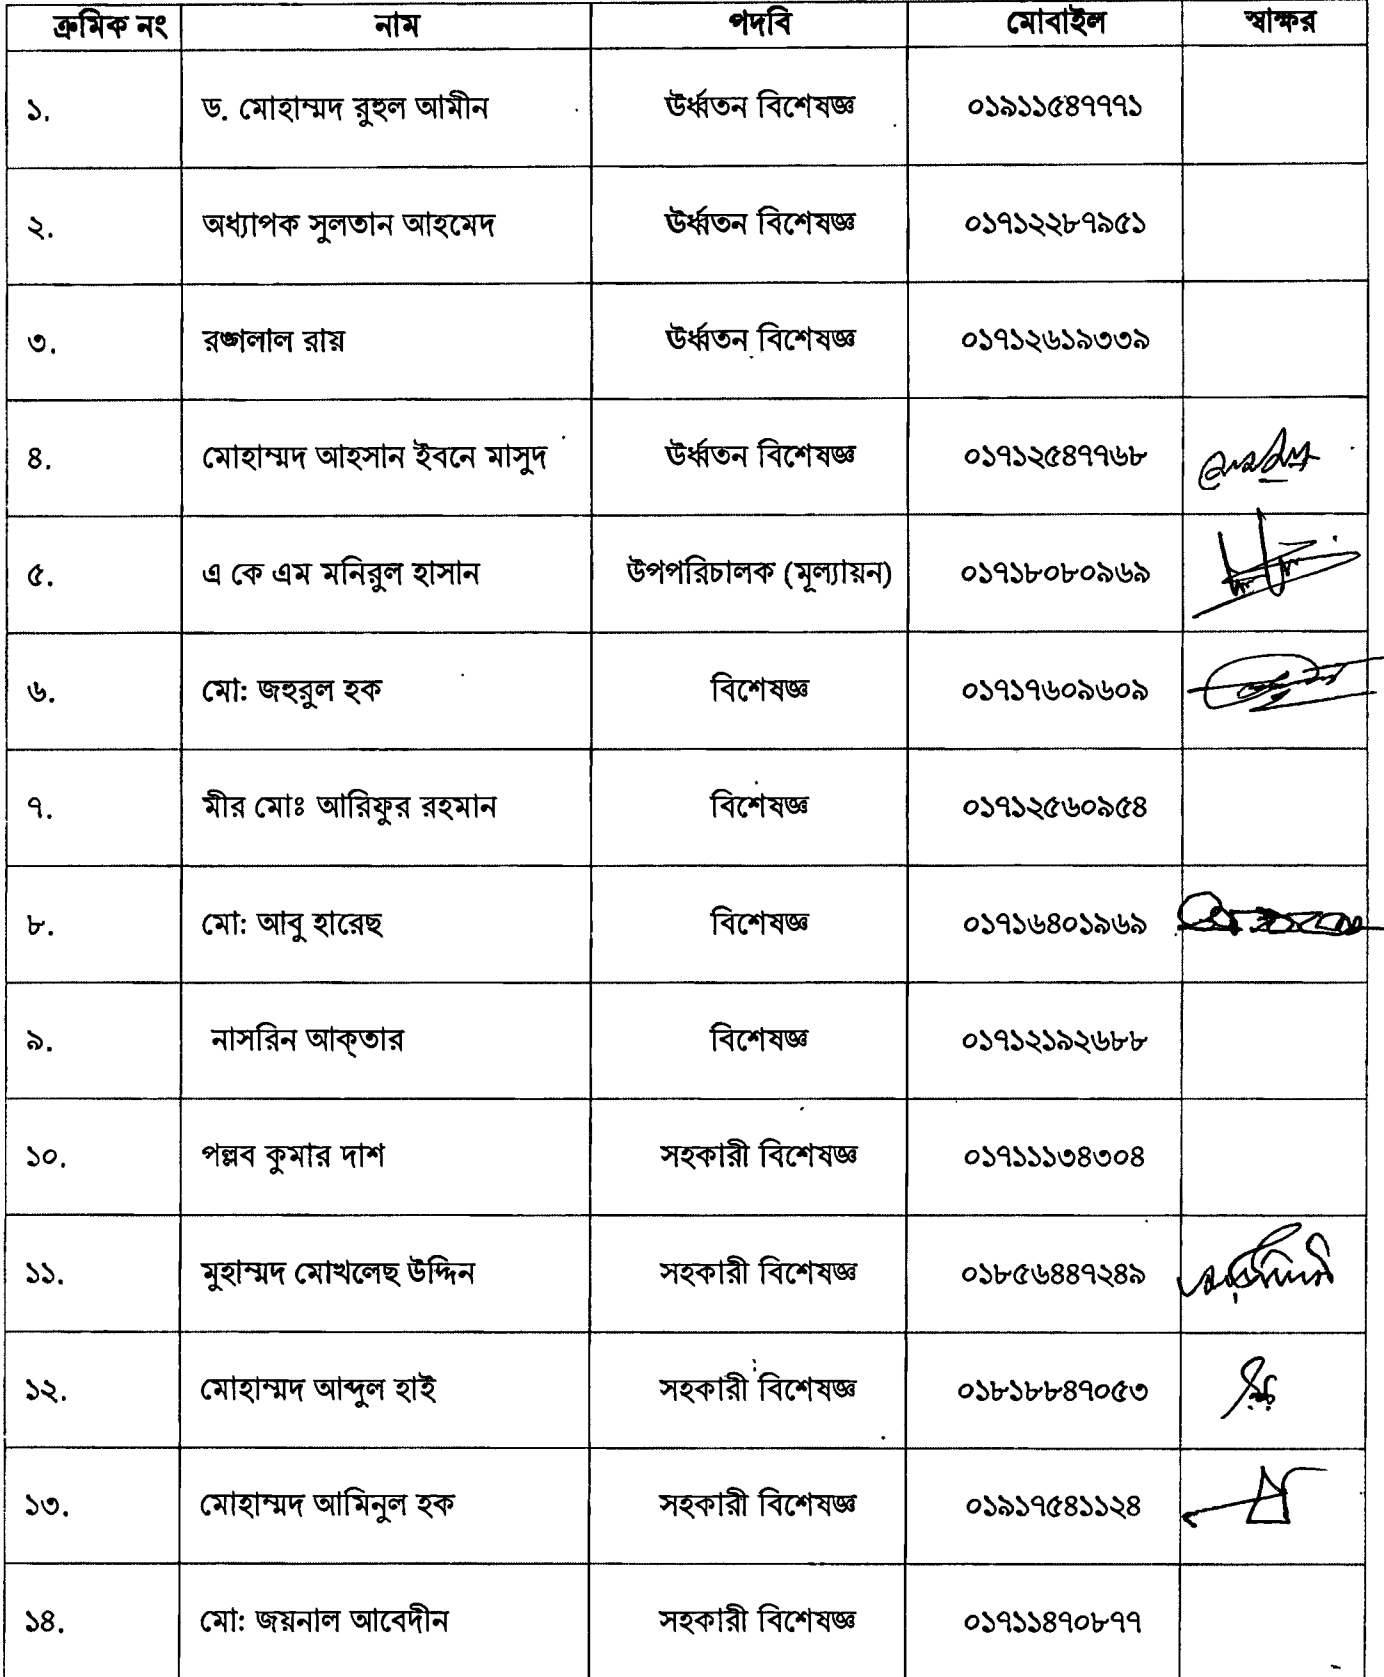 ক্রমিক নং নাম পদবি মোবাইল স্বাক্ষর
১. ড. মোহাম্মদ রুহুল আমীন ঊর্ধ্বতন বিশেষজ্ঞ ০১৯১১৫৪৭৭৭১
২. অধ্যাপক সুলতান আহমেদ ঊর্ধ্বতন বিশেষজ্ঞ ০১৭১২২৮৭৯৫১
৩. রঙ্গলাল রায় ঊর্ধ্বতন বিশেষজ্ঞ ০১৭১২৬১৯৩৩৯
৪. মোহাম্মদ আহসান ইবনে মাসুদ ঊর্ধ্বতন বিশেষজ্ঞ ০১৭১২৫৪৭৭৬৮
৫. এ কে এম মনিরুল হাসান উপপরিচালক (মূল্যায়ন) ০১৭১৮০৮০৯৬৯
৬. মো: জহুরুল হক বিশেষজ্ঞ ০১৭১৭৬০৯৬০৯
৭. মীর মোঃ আরিফুর রহমান বিশেষজ্ঞ ০১৭১২৫৬০৯৫৪
৮. মো: আবু হারেছ বিশেষজ্ঞ ০১৭১৬৪০১৯৬৯
৯. নাসরিন আক্‌তার বিশেষজ্ঞ ০১৭১২১৯২৬৮৮
১০. পল্লব কুমার দাশ সহকারী বিশেষজ্ঞ ০১৭১১১৩৪৩০৪
১১. মুহাম্মদ মোখলেছ উদ্দিন সহকারী বিশেষজ্ঞ ০১৮৫৬৪৪৭২৪৯
১২. মোহাম্মদ আব্দুল হাই সহকারী বিশেষজ্ঞ ০১৮১৮৮৪৭০৫৩
১৩. মোহাম্মদ আমিনুল হক সহকারী বিশেষজ্ঞ ০১৯১৭৫৪১১২৪
১৪. মো: জয়নাল আবেদীন সহকারী বিশেষজ্ঞ ০১৭১১৪৭০৮৭৭